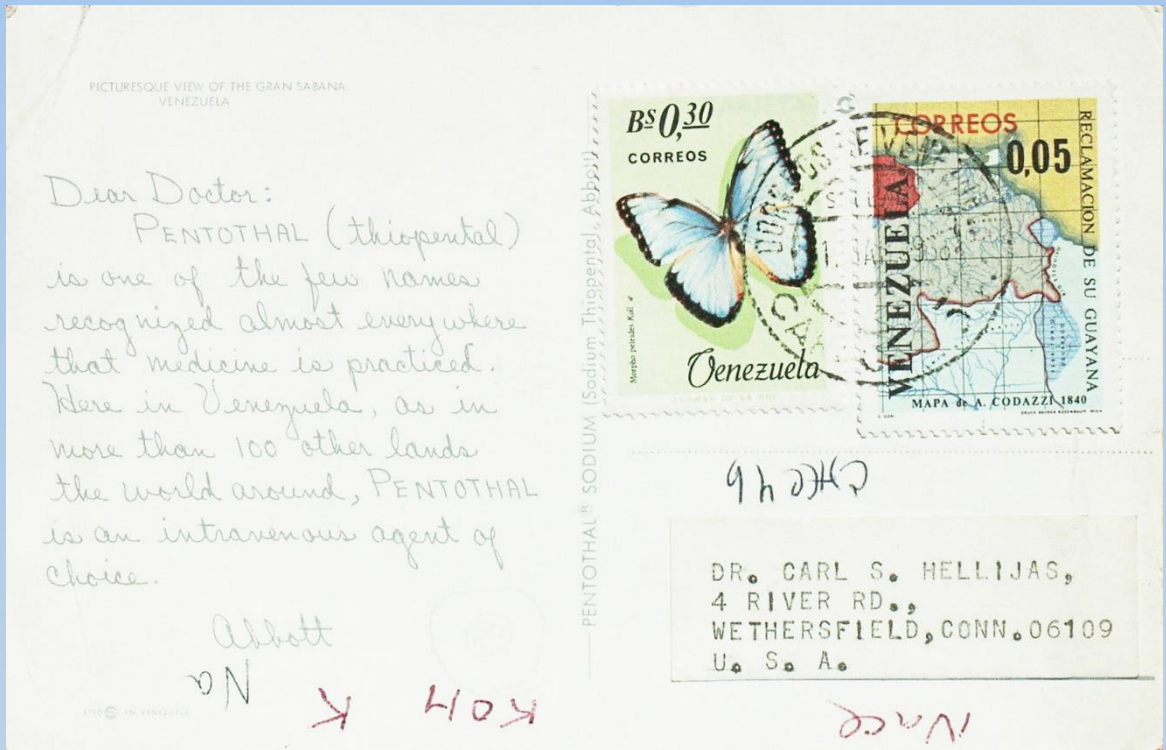 PICTURESQUE VIEW OF THE GRAN SABANA
VENEZUELA
Dear Doctor:
PENTOTHAL (thiopental)
is one of the few names
recognized almost everywhere
that medicine is practiced.
Here in Venezuela, as in
more than 100 other lands
the world around, PENTOTHAL
is an intravenous agent of
choice.
Abbott
Na
K
KOH
PENTOTHAL® SODIUM (Sodium Thiopental, Abbott)
Bs 0,30
CORREOS
Morpho peleides Koll.
Venezuela
THOMAS DE LA RUE
CORREOS
0,05
VENEZUELA
RECLAMACION DE SU GUAYANA
MAPA de A. CODAZZI 1840
CORREOS DE VEN
DR. CARL S. HELLIJAS,
4 RIVER RD.,
WETHERSFIELD, CONN. 06109
U. S. A.